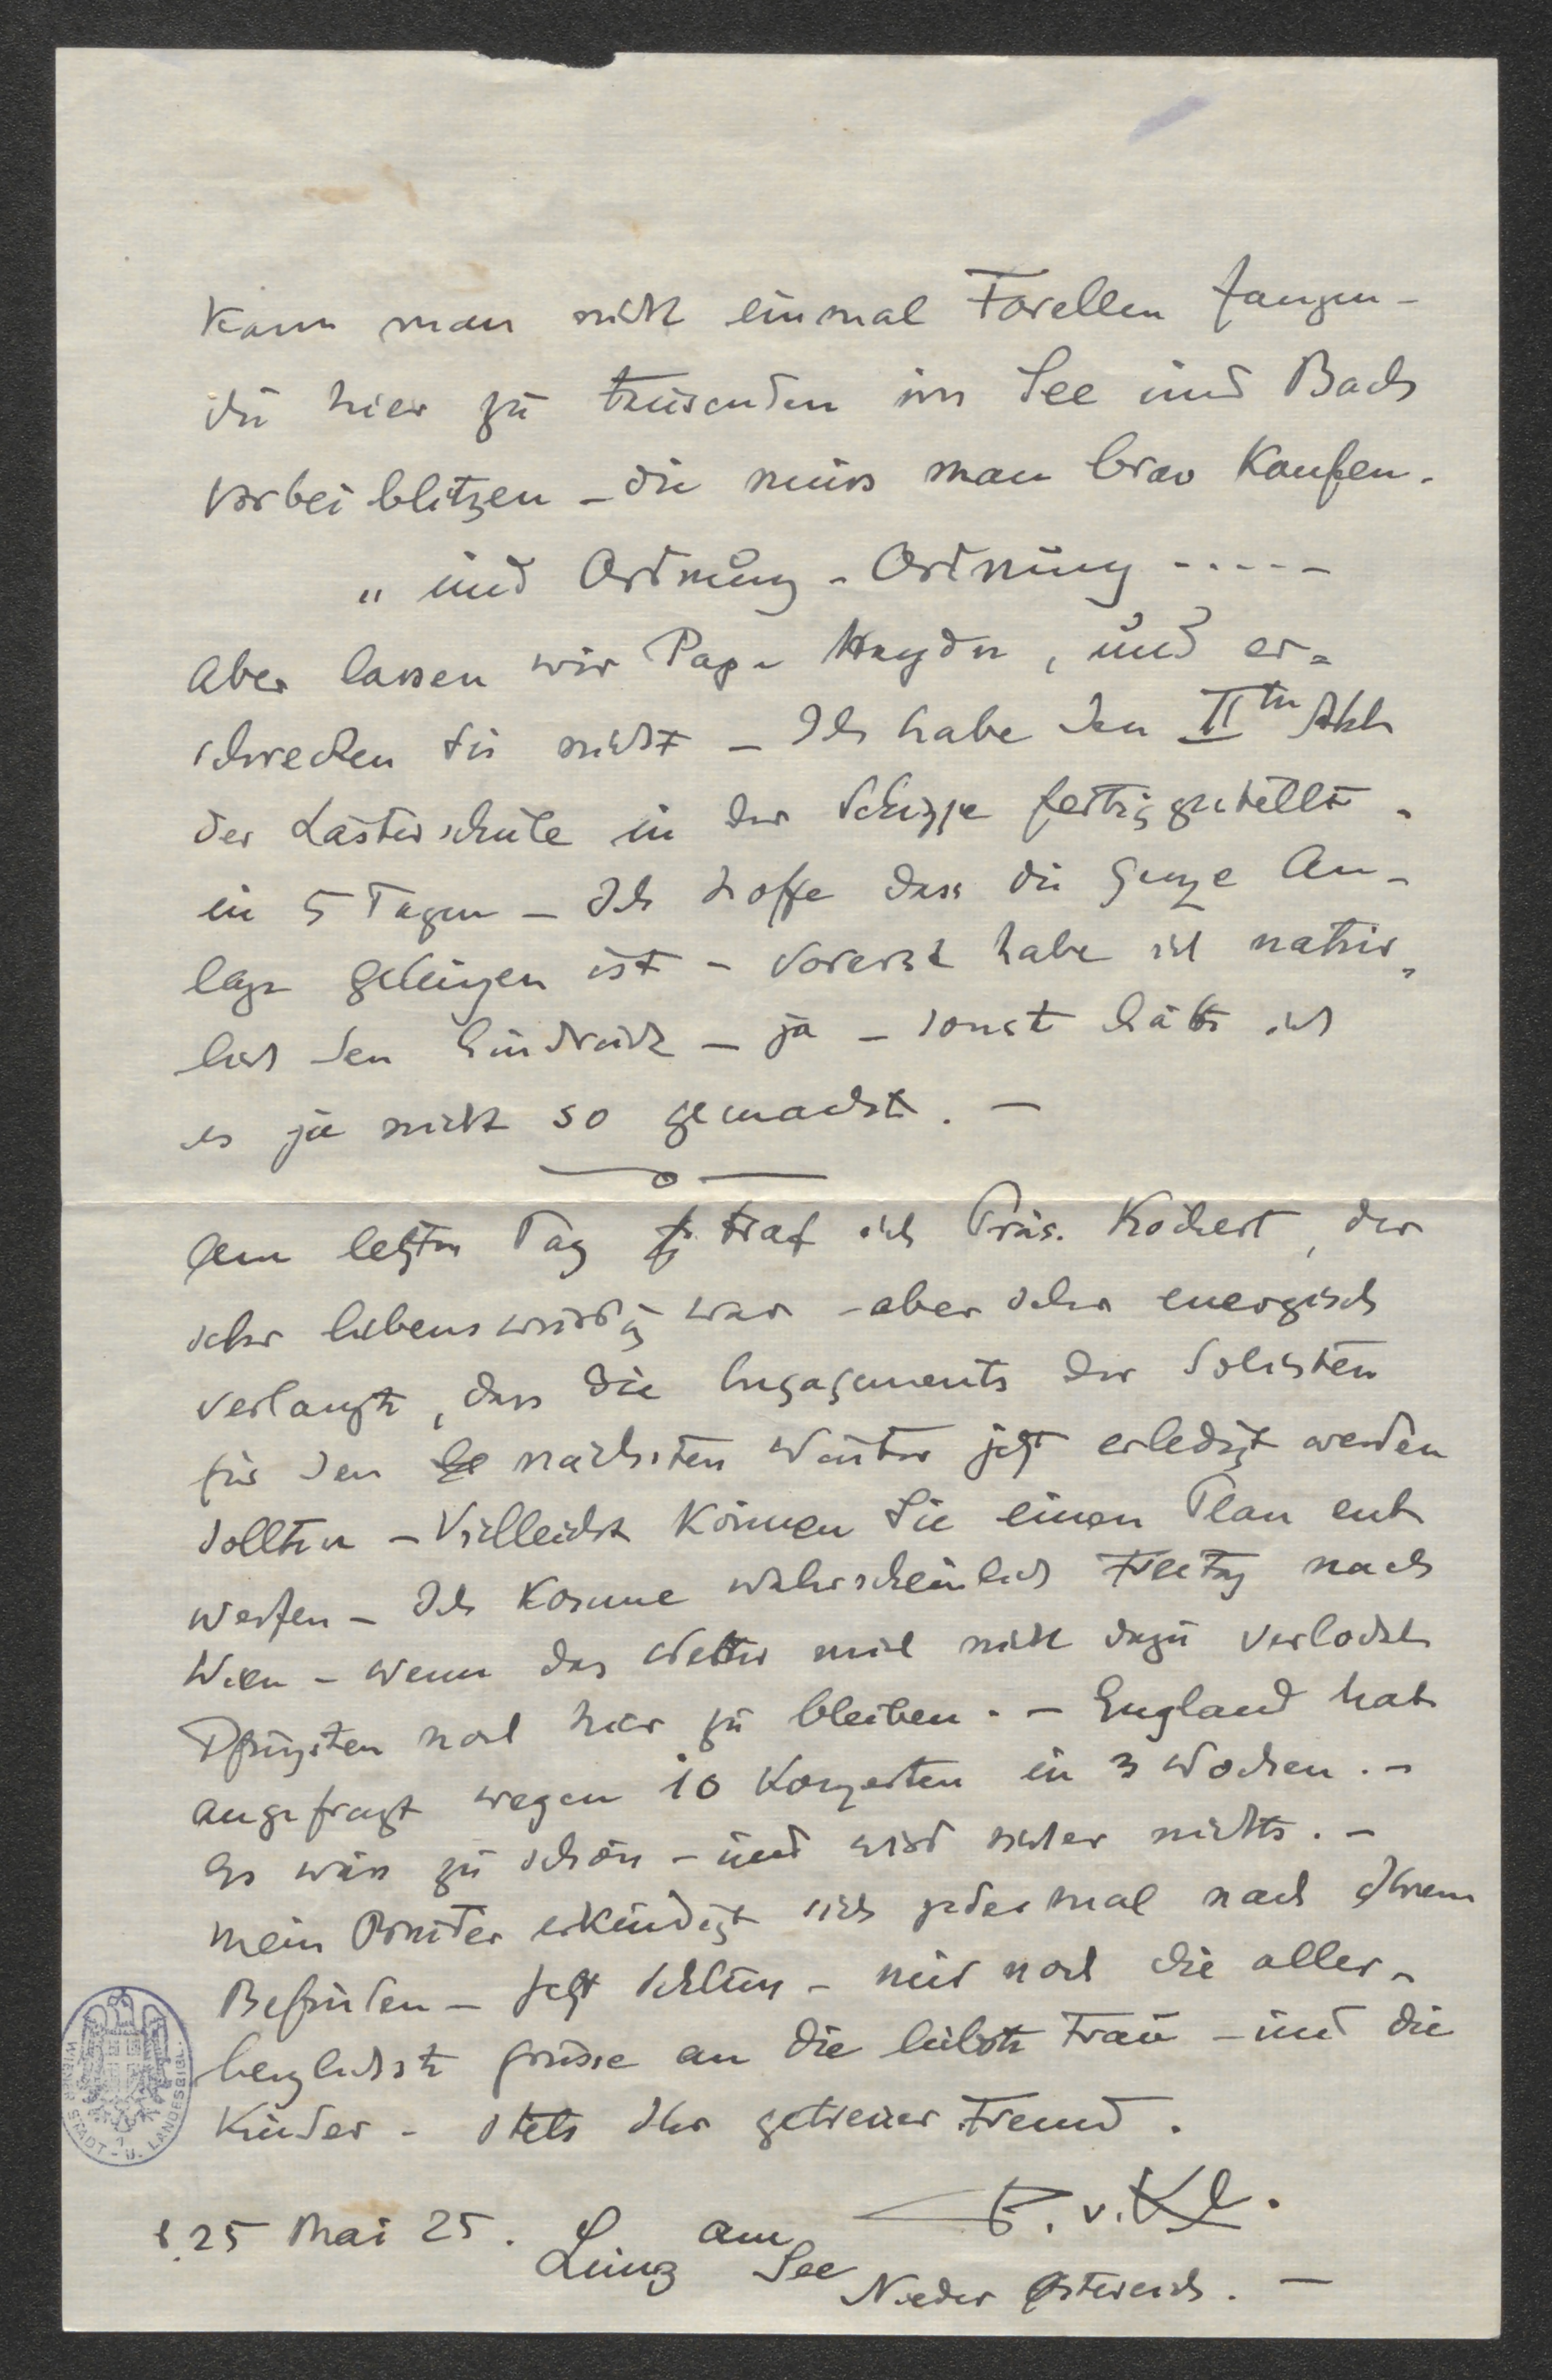 kann man nicht einmal Forellen fangen –
die hier zu tausenden im See und Bach
vorbei blitzen – die muss man brav kaufen.
„ und Ordnung – Ordnung -----
Aber lassen wir Papa Haydn, und er=
schrecken Sie nicht – Ich habe den IIten Akt
der Lästerschule in der Skizze fertiggestellt.
in 5 Tagen – Ich hoffe dass die ganze An-
lage gelungen ist – Vorerst habe ich natür=
lich den Eindruck – ja – sonst hätte ich
es ja nicht so gemacht. –
Am letzten Tag traf ich Präs. Köchert, der
sehr liebenswürdig war – aber sehr energisch
verlangte, dass die Engagements der Solisten
für den nächsten Winter jetzt erledigt werden
sollten – Vielleicht können Sie einen Plan ent
werfen – Ich komme wahrscheinlich Freitag nach
Wien – wenn das Wetter mich nicht dazu verlockt
Pfingsten noch hier zu bleiben. – England hat
angefragt wegen 10 Konzerten in 3 Wochen. –
Es wäre zu schön – und wird sicher nichts. –
Mein Bruder erkundigt sich jedesmal nach Ihrem
Befinden – jetzt Schluss – nur noch die aller-
herzlichste Grüsse an die liebste Frau – und die
Kinder – Stets Ihr getreuer Freund.
P. v. Kl.
25 Mai 25. Lunz am See
Nieder Östereich. –
WIENER STADT- U. LANDESBIBL.